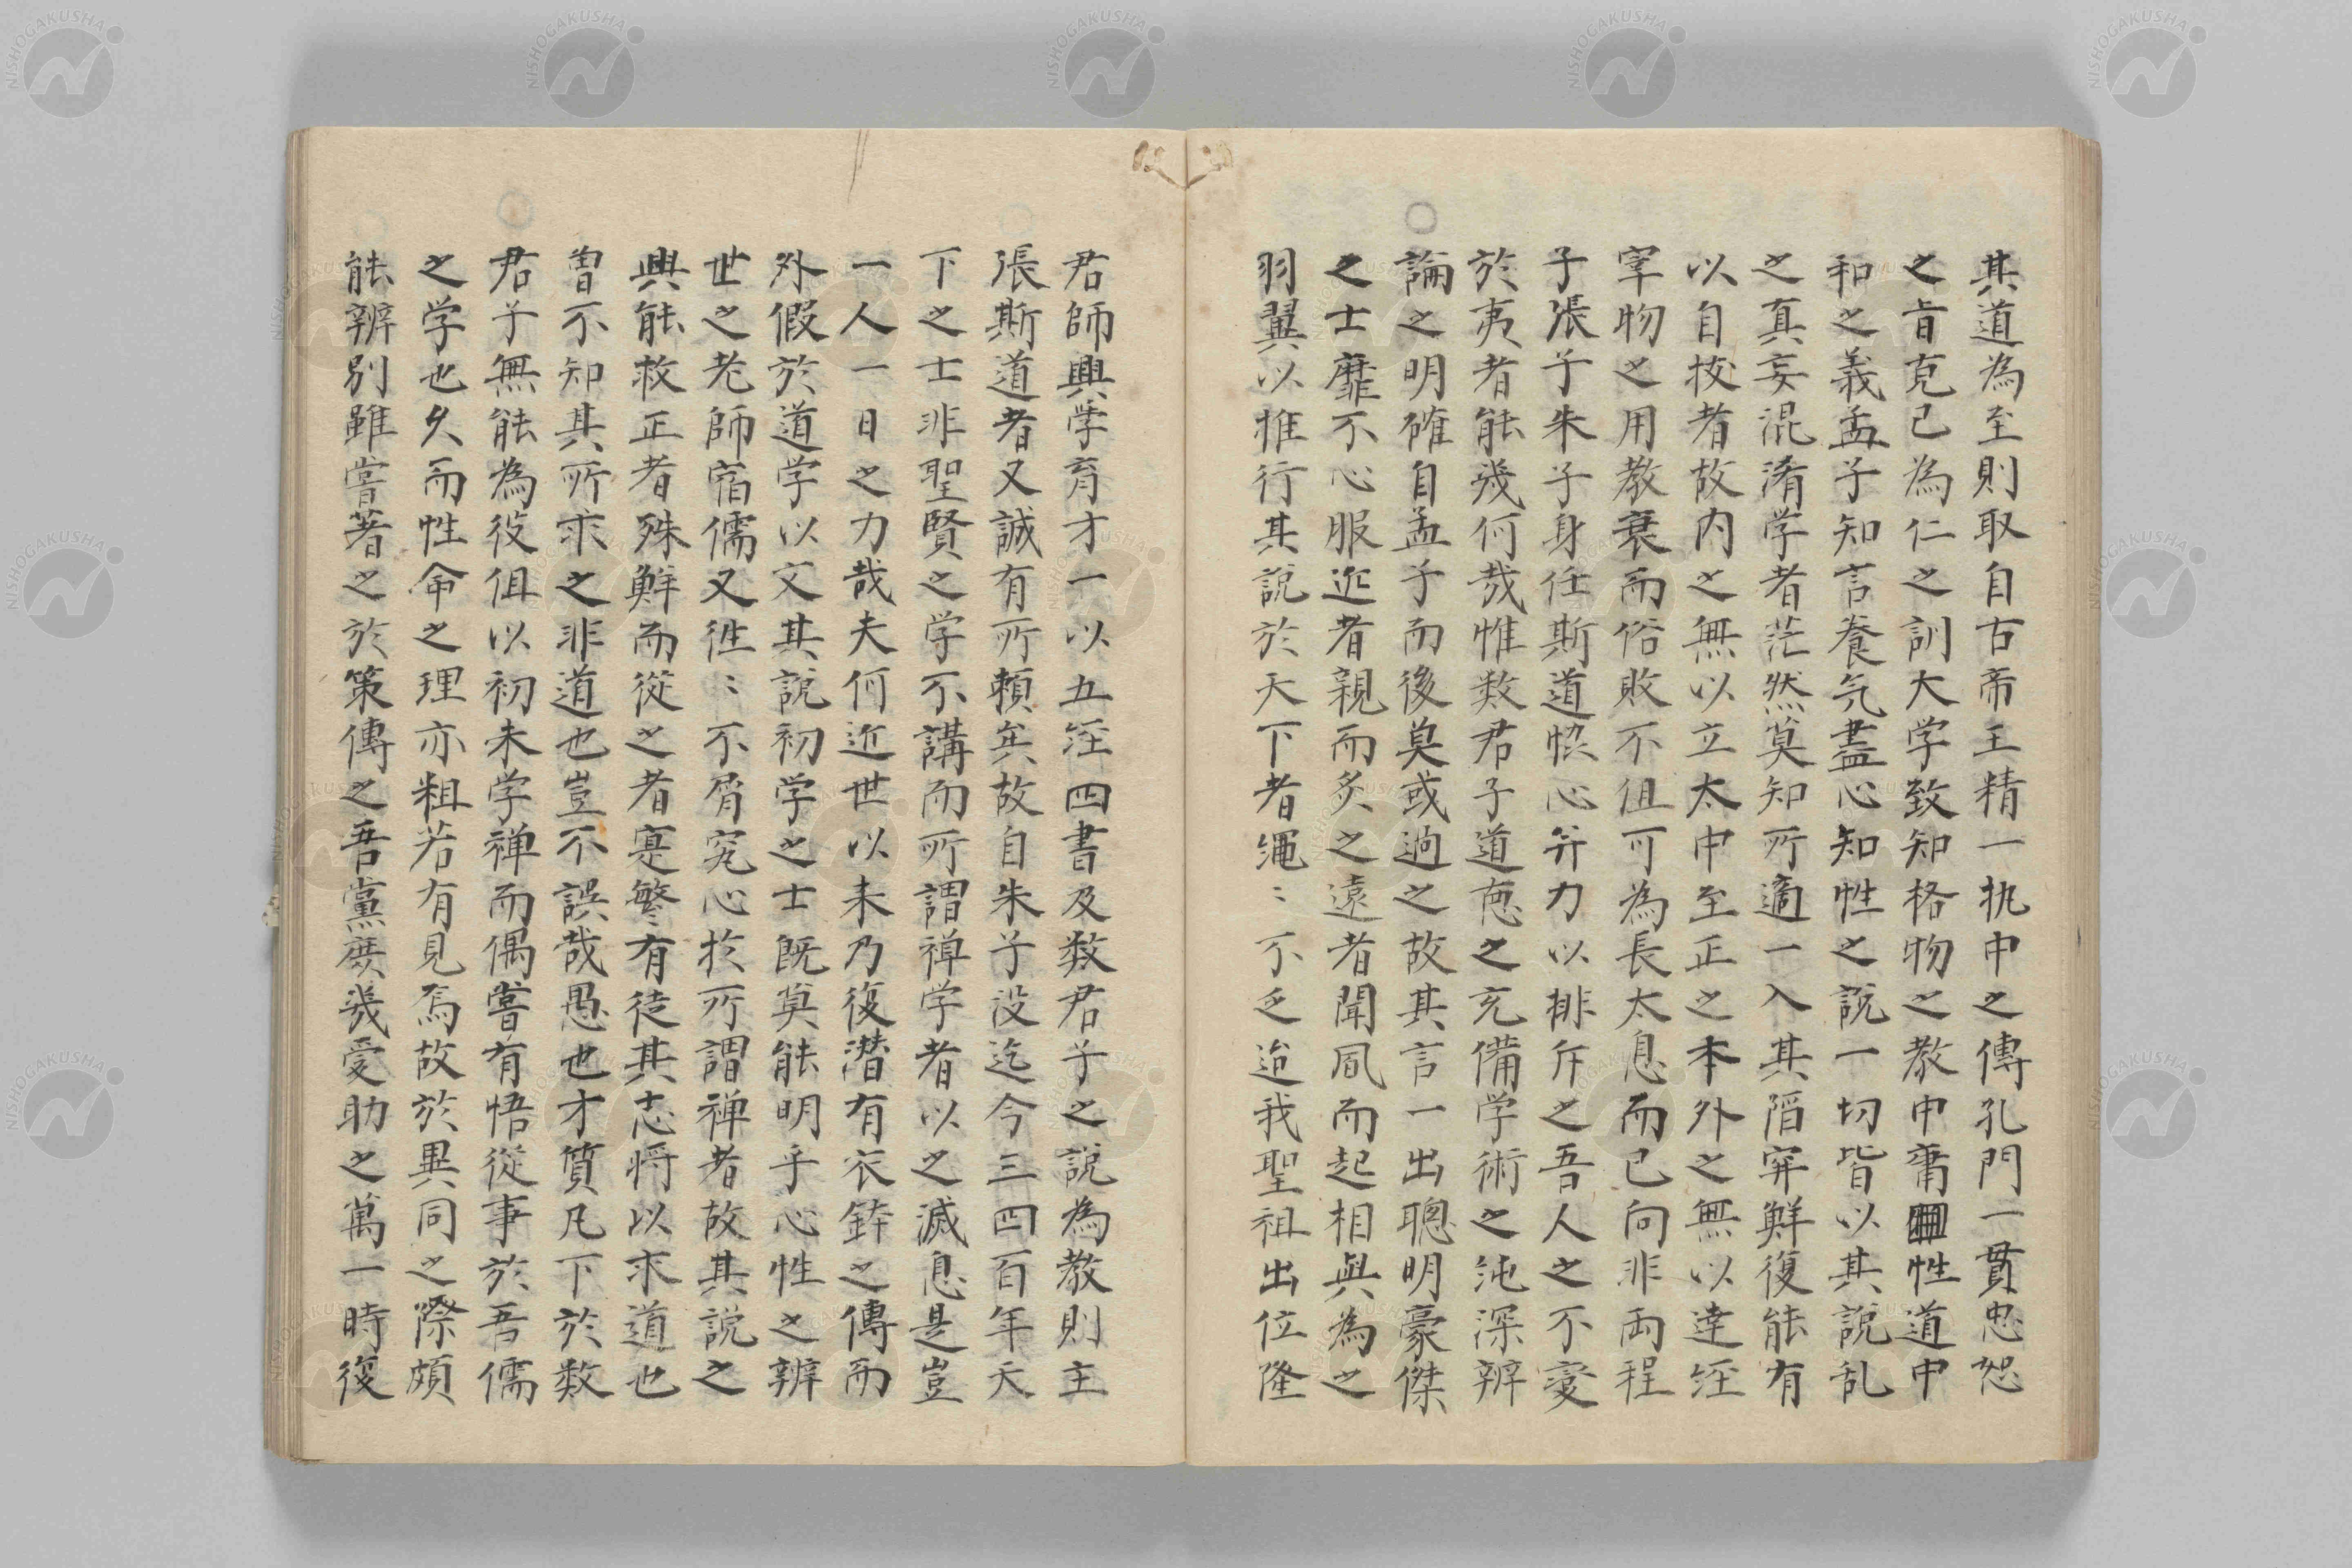 其道為至則取自古帝王精一執中之傳孔門一貫忠恕
之旨克己為仁之訓大学致知格物之教中庸性道中
和之義孟子知言養気盡心知性之說一切皆以其說乱
之真妄混淆学者茫然莫知所適一入其陷穽鮮復能有
以自拔者故内之無以立太中至正之本外之無以達経
宰物之用教衰而俗敗不但可為長太息而已向非両程
子張子朱子身任斯道恊心并力以排斥之吾人之不変
於夷者能幾何哉惟数君子道徳之充備学術之純深辨
論之明確自孟子而後莫或過之故其言一出聰明豪傑
之士靡不心服近者親而炙之遠者聞風而起相與為之
羽翼以推行其說於天下者繩〻不乏迨我聖祖出位隆
君師興学育才一以五経四書及数君子之說為教則主
張斯道者又誠有所頼矣故自朱子没迄今三四百年天
下之士非聖賢之学不講而所謂禅学者以之滅息是豈
一人一日之力哉夫何近世以来乃復潜有衣鉢之傳而
外假於道学以文其說初学之士既莫能明乎心性之辨
世之老師宿儒又徃〻不屑究心於所謂禅者故其說之
興能救正者殊鮮而從之者寔繁有徒其志将以求道也
曽不知其所求之非道也豈不誤哉愚也才質凡下於数
君子無能為役但以初未学禅而偶嘗有悟從事於吾儒
之学也久而性命之理亦粗若有見焉故於異同之際頗
能辨別雖嘗著之於策傳之吾黨庶幾愛助之萬一時復